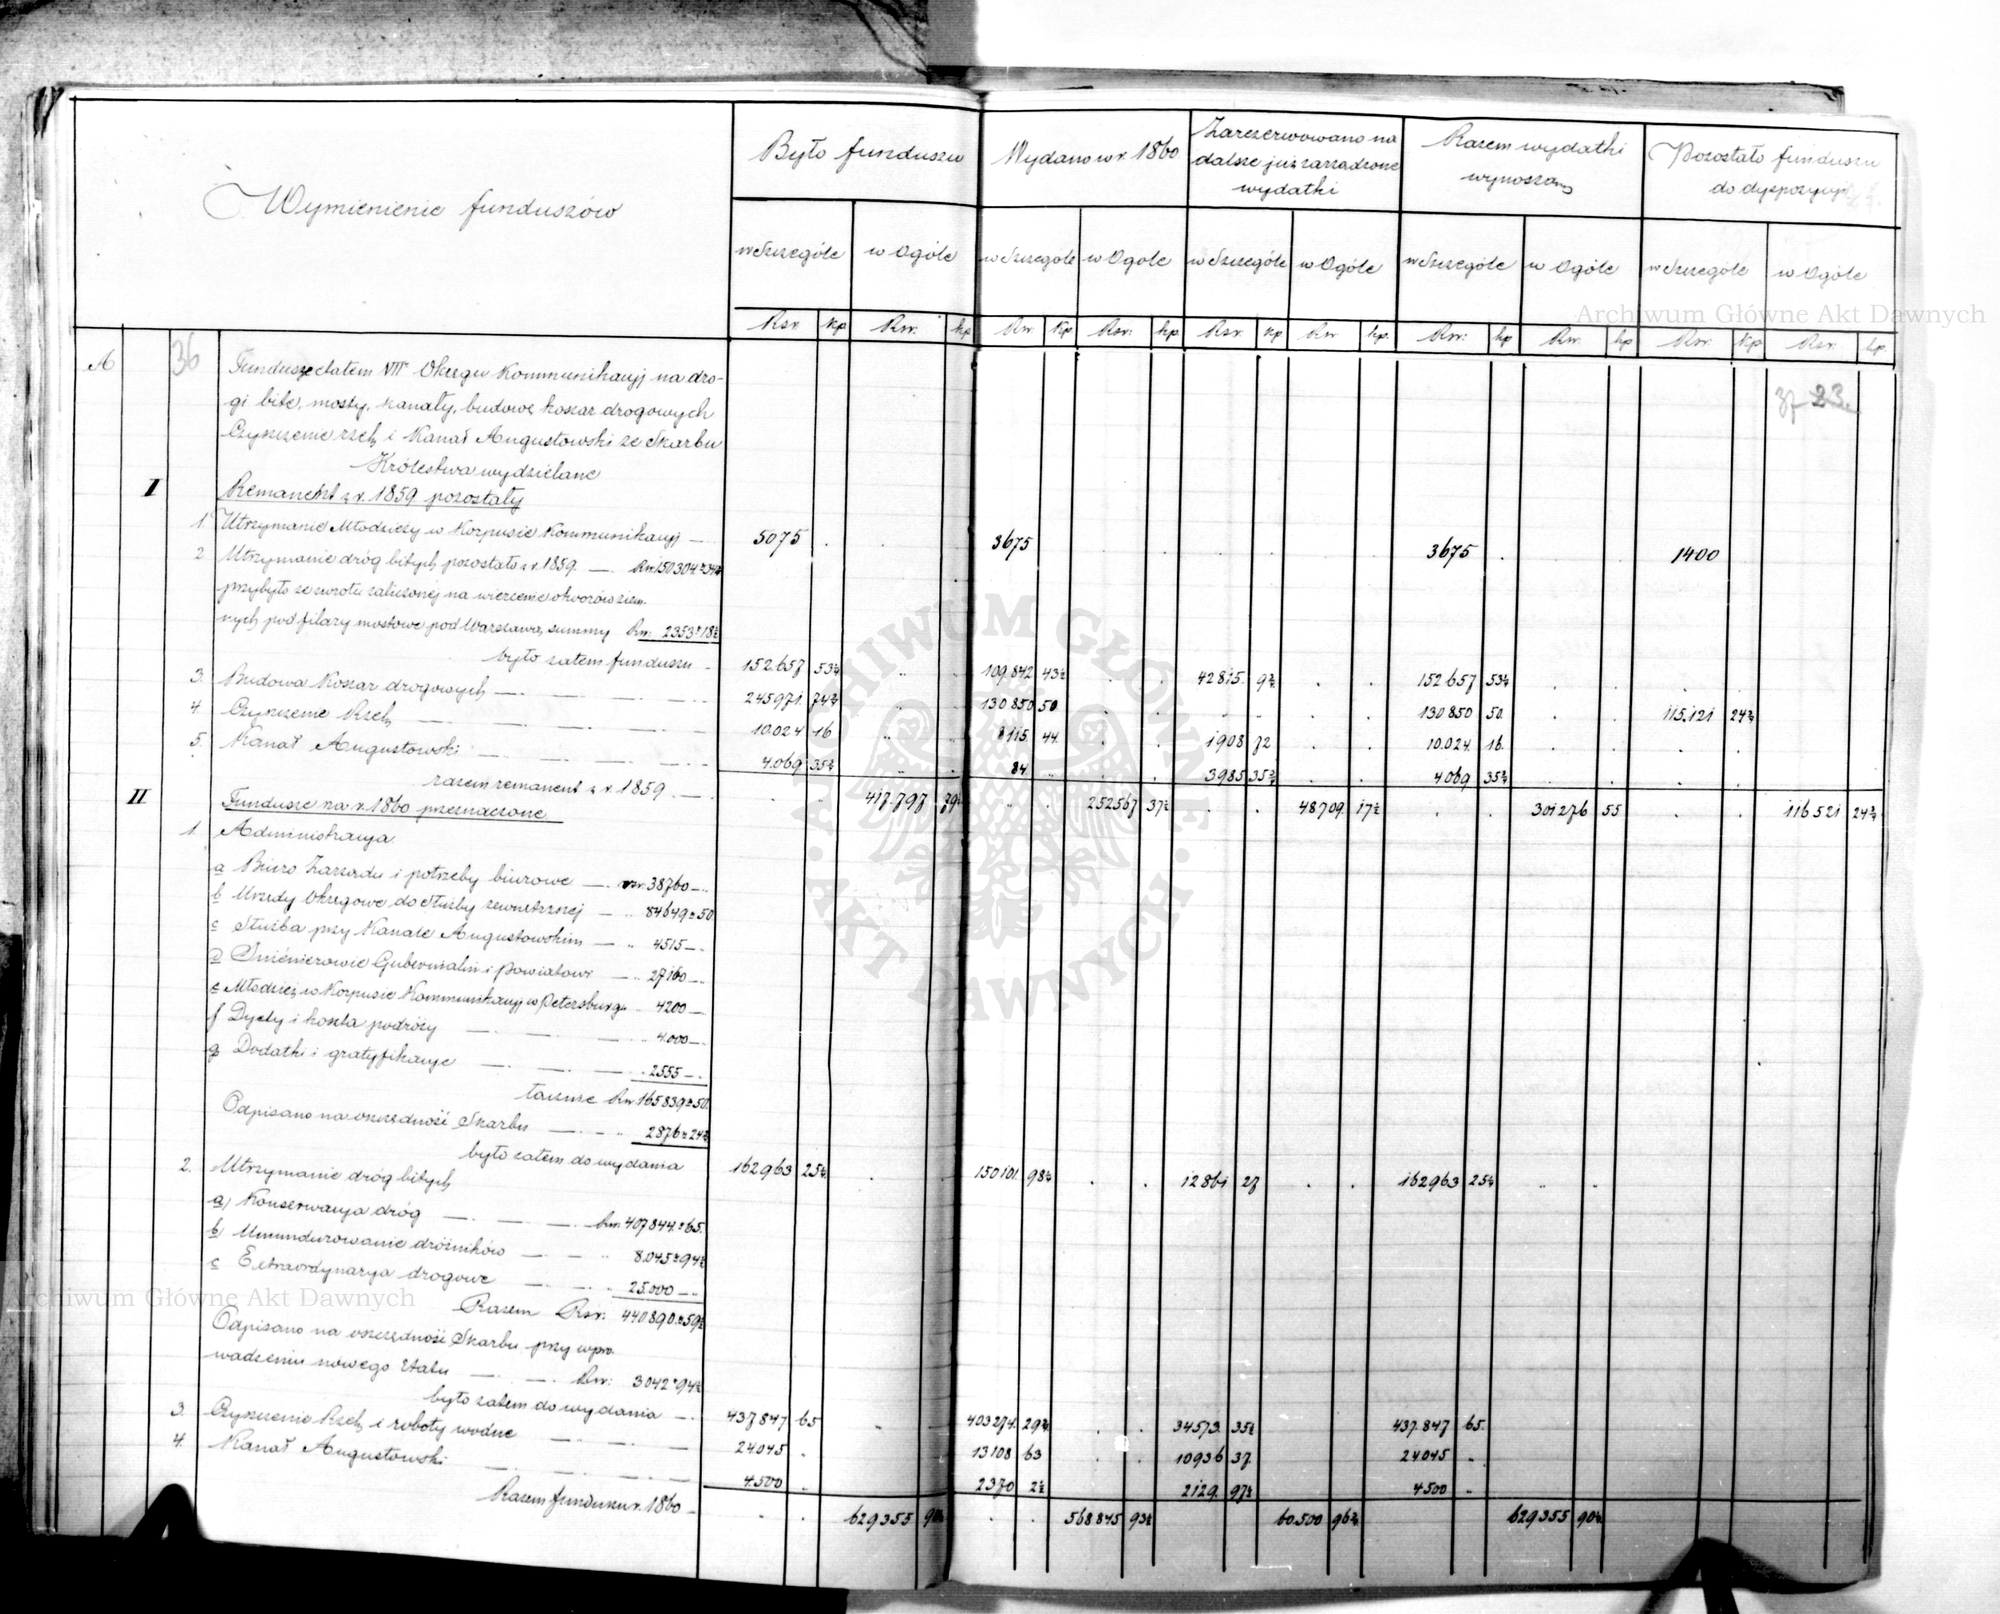 Wymienienie funduszów
Było funduszu
Wydano w r. 1860
Zarezerwowano na dalsze już zarządzone wydatki
Razem wydatki wynoszą
Pozostało funduszu do dyspozycyi
w Szczególe w Ogóle w Szczególe w Ogóle w Szczególe w Ogóle w Szczególe w Ogóle w Szczególe w Ogóle
Rsr. kp Rsr. kp Rsr. kp Rsr. kp Rsr. kp Rsr. kp. Rsr. kp Rsr. kp Rsr. kp Rsr. kp.
Archiwum Główne Akt Dawnych
A 36 Fundusze etatem VIII Okręgu Kommunikacyj na dro-
37 23
gi bite, mosty, kanały, budowę koszar drogowych
Czyszczenie rzek i Kanał Augustowski ze Skarbu
Królestwa wydzielane
I Remanent z r. 1859 pozostały
1 Utrzymanie Młodzieży w Korpusie Kommunikacyj — 5075 . 3675 3675 . 1400
2 Utrzymanie dróg bitych pozostało z r. 1859. — Rsr. 150304
przybyło ze zwrotu zaliczonej na wiercenie otworów ziem.
nych pod filary mostowe pod Warszawą, summy Rsr: 2353 " 18½
było zatem funduszu - 152657 53¼ 109.842 43½ 42815. 9¾ 152657 53¼
3. Budowa Koszar drogowych — 245971. 74¾ 130850 50. 130850 50. 115.121 24¾
4. Czyszczenie Rzek — 10.024 16 8115. 44. 1908 72 10.024. 16.
5. Kanał Augustowski — 4.069 35¾ 84. 3985 35¾ 4069 35¾
razem remanent z r. 1859. — 417.797 79½ 252567 37½ 48709. 17½ 301276 55 116521 24¾
II Fundusze na r. 1860 przeznaczone
1. Administracya
a Biuro Zarządu i potrzeby biurowe — rsr. 38760 —
b Urzędy Okręgowe do służby zewnętrznej — 84649 " 50
c Służba przy Kanale Augustowskim — 4515 —
d Inżenierowie Gubernialni i powiatowi — 27160 —
e Młodzież w Korpusie Kommunikacyj w Petersburgu - 4200 —
f Dyety i koszta podróży — 4.000 —
g Dodatki i gratyfikacye — 2555 —
łącznie Rsr. 165839 " 50.
Odpisano na oszczędność Skarbu — 2876 " 24¾
było zatem do wydania 162963 25¼ 150101. 98¼ 12861 27 162963 25¼
2. Utrzymanie dróg bitych
a/ Konserwacya dróg — Rsr. 407844 " 65.
b Umundurowanie dróżników — 8.045 " 94½
c Extraordynarya drogowe — 25.000 —
Archiwum Główne Akt Dawnych
Razem Rsr. 440890 " 59½
Odpisano na oszczędność Skarbu przy wpro.
wadzeniu nowego Etatu — Rsr: 3042 " 94½
było zatem do wydania — 437847 65 403274. 29¾ 34573. 35¼ 437.847 65.
3. Czyszczenie Rzek i roboty wodne — 24045 . 13108 63 10936 37 24045 .
4. Kanał Augustowski — 4.500 . 2370 2½ 2129. 97½ 4500 .
Razem funduszu r. 1860 — 629355 568845 93½ 60.500 96¾ 629355 90¼
ARCHIWUM GŁÓWNE
AKT DAWNYCH